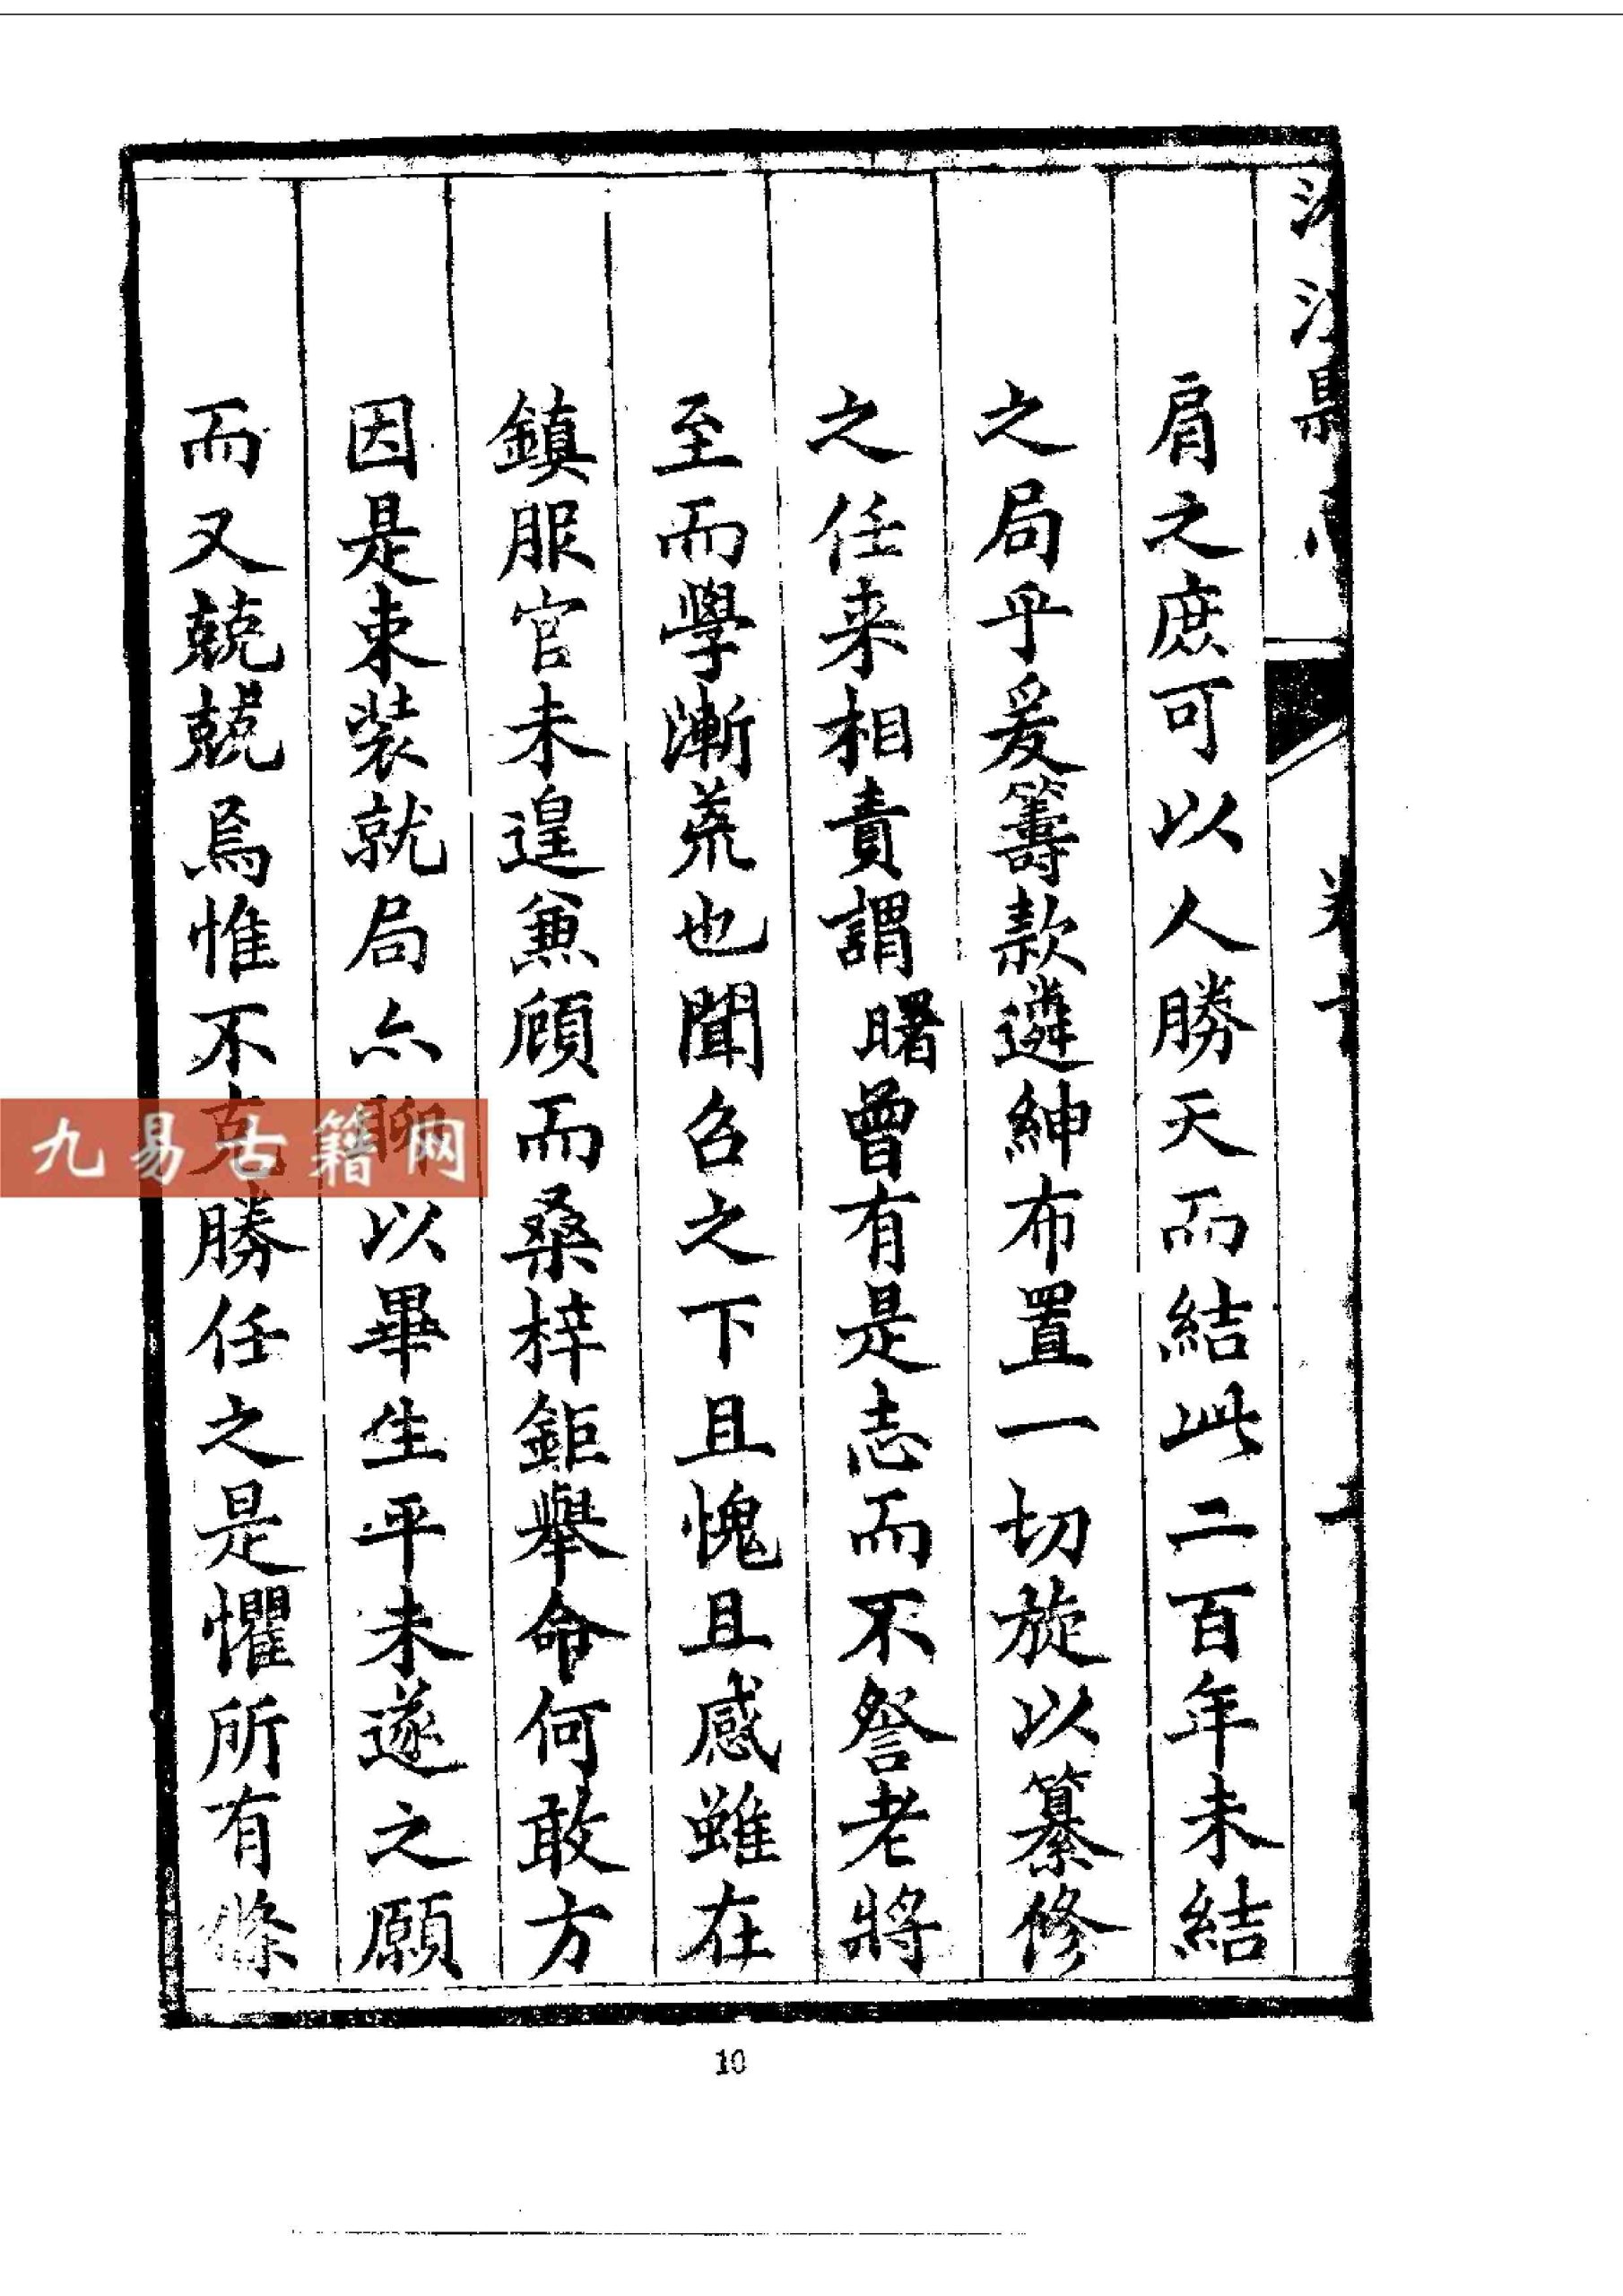 肩之庶可以人勝天而結此二百年未結
之局乎爰籌款遴紳布置一切旋以纂修
之任来相責謂曙曾有是志而不詧老將
至而學漸荒也聞召之下且愧且感雖在
鎮服官未遑兼顧而桑梓鉅舉命何敢方
因是束裝就局亦聊以畢生平未遂之願
而又兢兢焉惟不克勝任之是懼所有條
九易古籍网
10